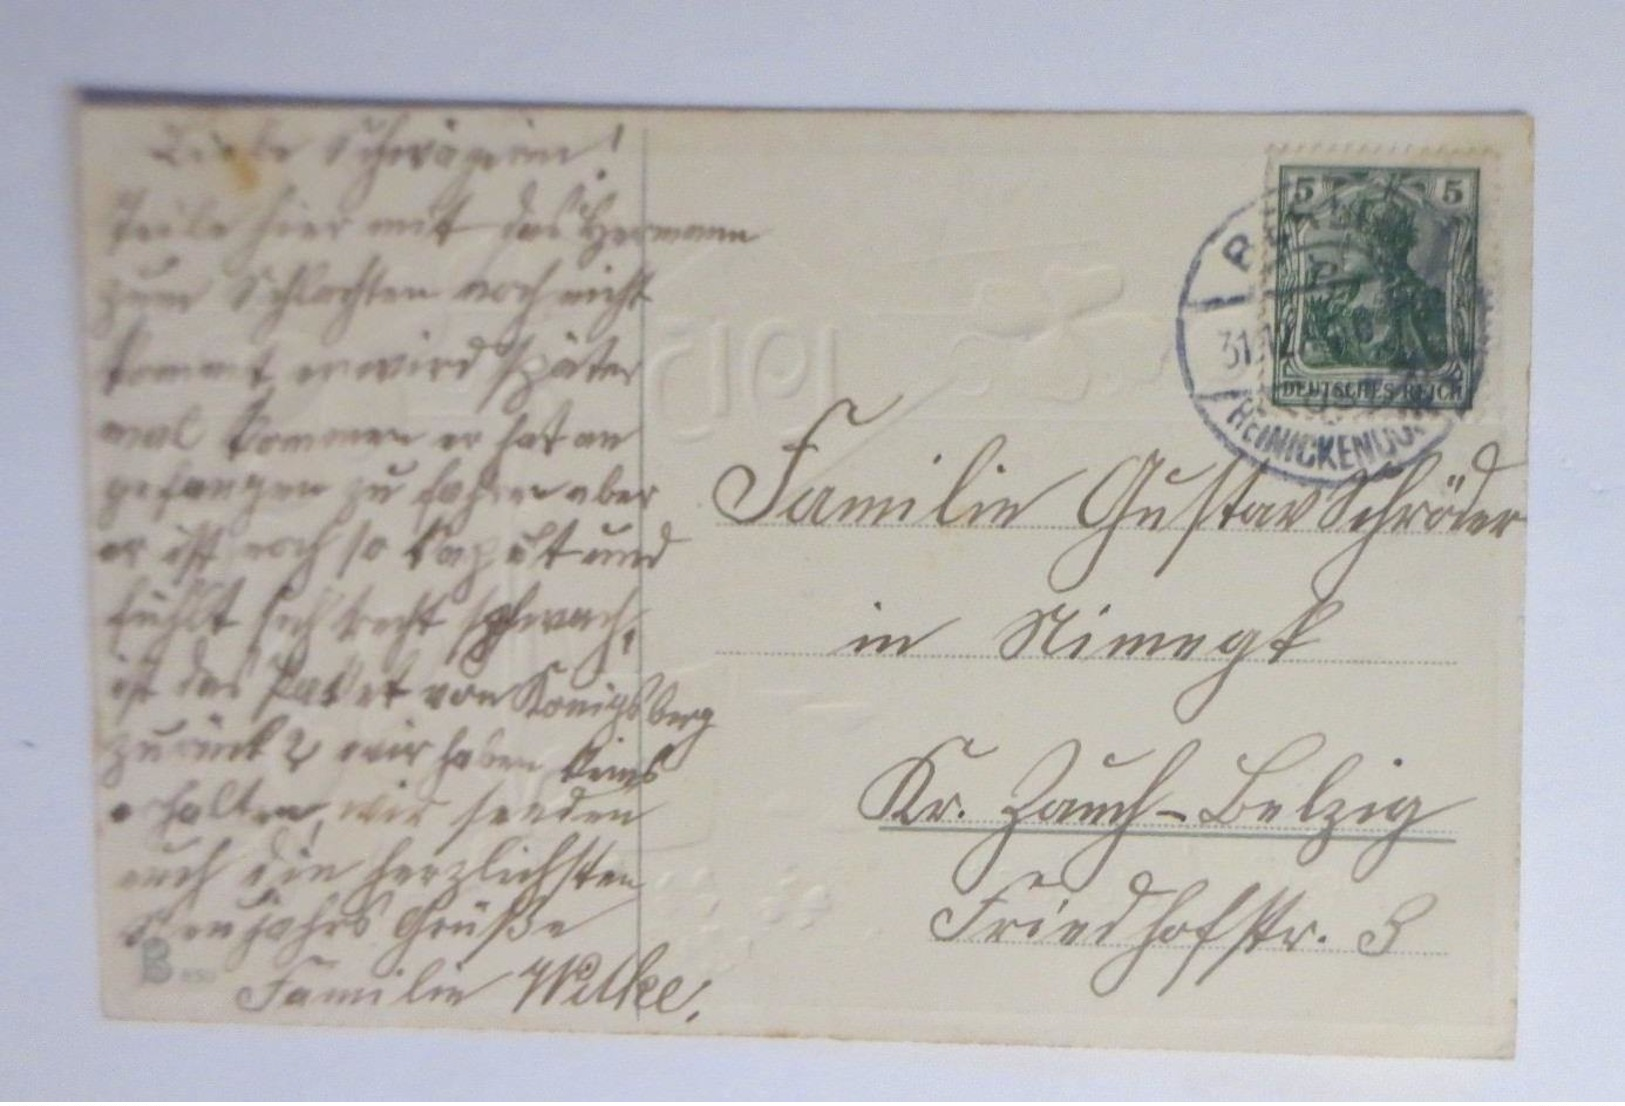 Liebe Schwägerin!
Teile hier mit das Hermann
zum Schlachten noch nicht
kommt er wird später
mal kommen er hat an
gefangen zu fahren aber
er ist noch so kaput und
fühlt sich recht schwach,
ist das Packet von Königsberg
zurück? wir haben keins
erhalten, wir senden
euch die herzlichsten
Neujahrs Grüße
Familie Wilke.
5 5
DEUTSCHES REICH
31.
REINICKENDORF
1915
Familie Gustav Schröder
in Nimegk
Kr. Zauch-Belzig
Friedhofstr. 3
B